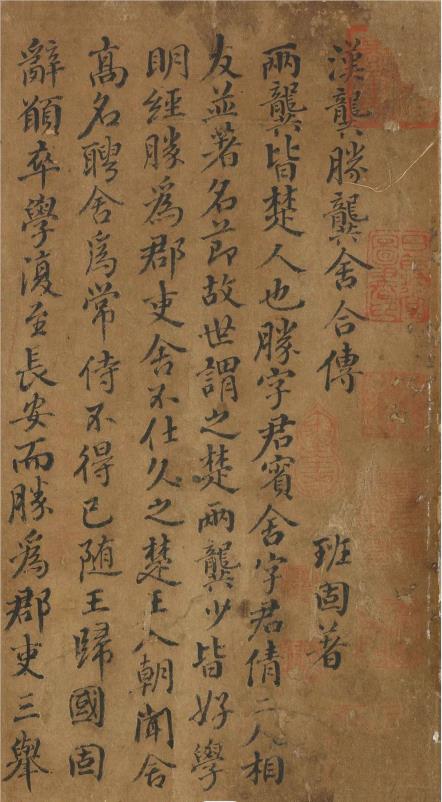 漢龔勝龔舍合傳
班固著
兩龔皆楚人也勝字君賓舍字君倩二人相
友並著名節故世謂之楚兩龔少皆好學
明經勝爲郡吏舍不仕久之楚王入朝聞舍
髙名聘舍爲常侍不得已随王歸國固
辭願卒學復至長安而勝爲郡吏三舉